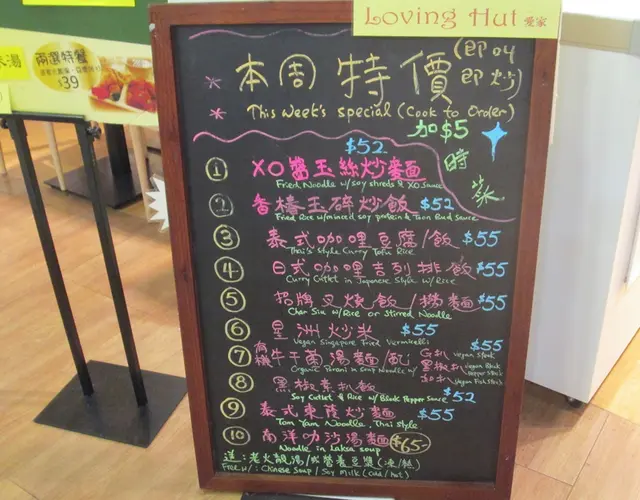 Loving Hut 愛家
米湯
兩選特餐
$39
本周特價 (即叫即炒)
This week's special (Cook to Order)
加$5
時菜
$52
① XO醬玉絲炒麵
Fried Noodle w/ soy shreds & XO sauce
② 香椿玉碎炒飯 $52
Fried Rice w/ minced soy protein & Toon Bud sauce
③ 泰式咖哩豆腐/飯 $55
Thai's Style Curry Tofu Rice
④ 日式咖哩吉列排飯 $55
Curry Cutlet in Japanese Style w/ Rice
⑤ 招牌叉燒飯/撈麵 $55
Char Siu w/ Rice or Stirred Noodle
⑥ 星洲炒米 $55
Vegan Singapore Fried Vermicelli
$55
⑦ 有機牛干菌湯麵/配
Organic in Soup Noodle w/
扒 Vegan Steak
黑椒扒 Vegan Black Pepper Steak
扒 Vegan Fish Steak
⑧ 黑椒素扒飯 $52
Soy Cutlet & Rice w/ Black Pepper Sauce
⑨ 泰式東蔭炒麵 $55
Tom Yam Noodle, Thai style
⑩ 南洋叻沙湯麵 $65-
Noodle in Laksa soup
送:老火靚湯/或營養豆漿(凍/熱)
Free w/: Chinese Soup / Soy Milk (cold/hot)